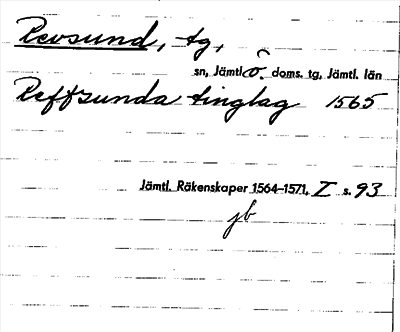 Revsund, tg,
sn, Jämtl. ö. doms. tg, Jämtl. län
Reffsunda tinglag 1565
Jämtl. Räkenskaper 1564-1571, I s. 93
jb